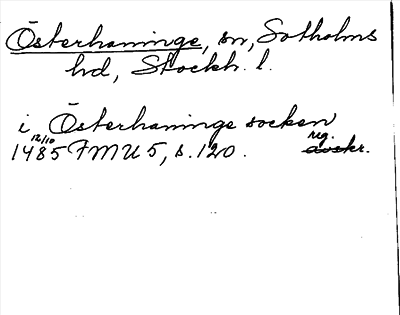 Österhaninge, sn, Sotholms
hd, Stockh. l.
i Österhaninge socken
12/10 rg.
1485 FMU 5, s. 120. avskr.